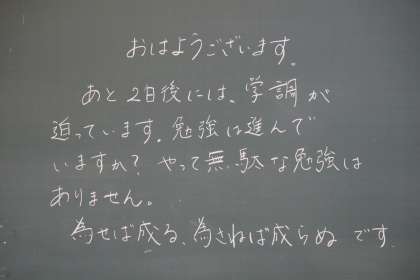 おはようございます。
あと2日後には、学調が
迫っています。勉強は進んで
いますか？やって無駄な勉強は
ありません。
為せば成る、為さねば成らぬです。